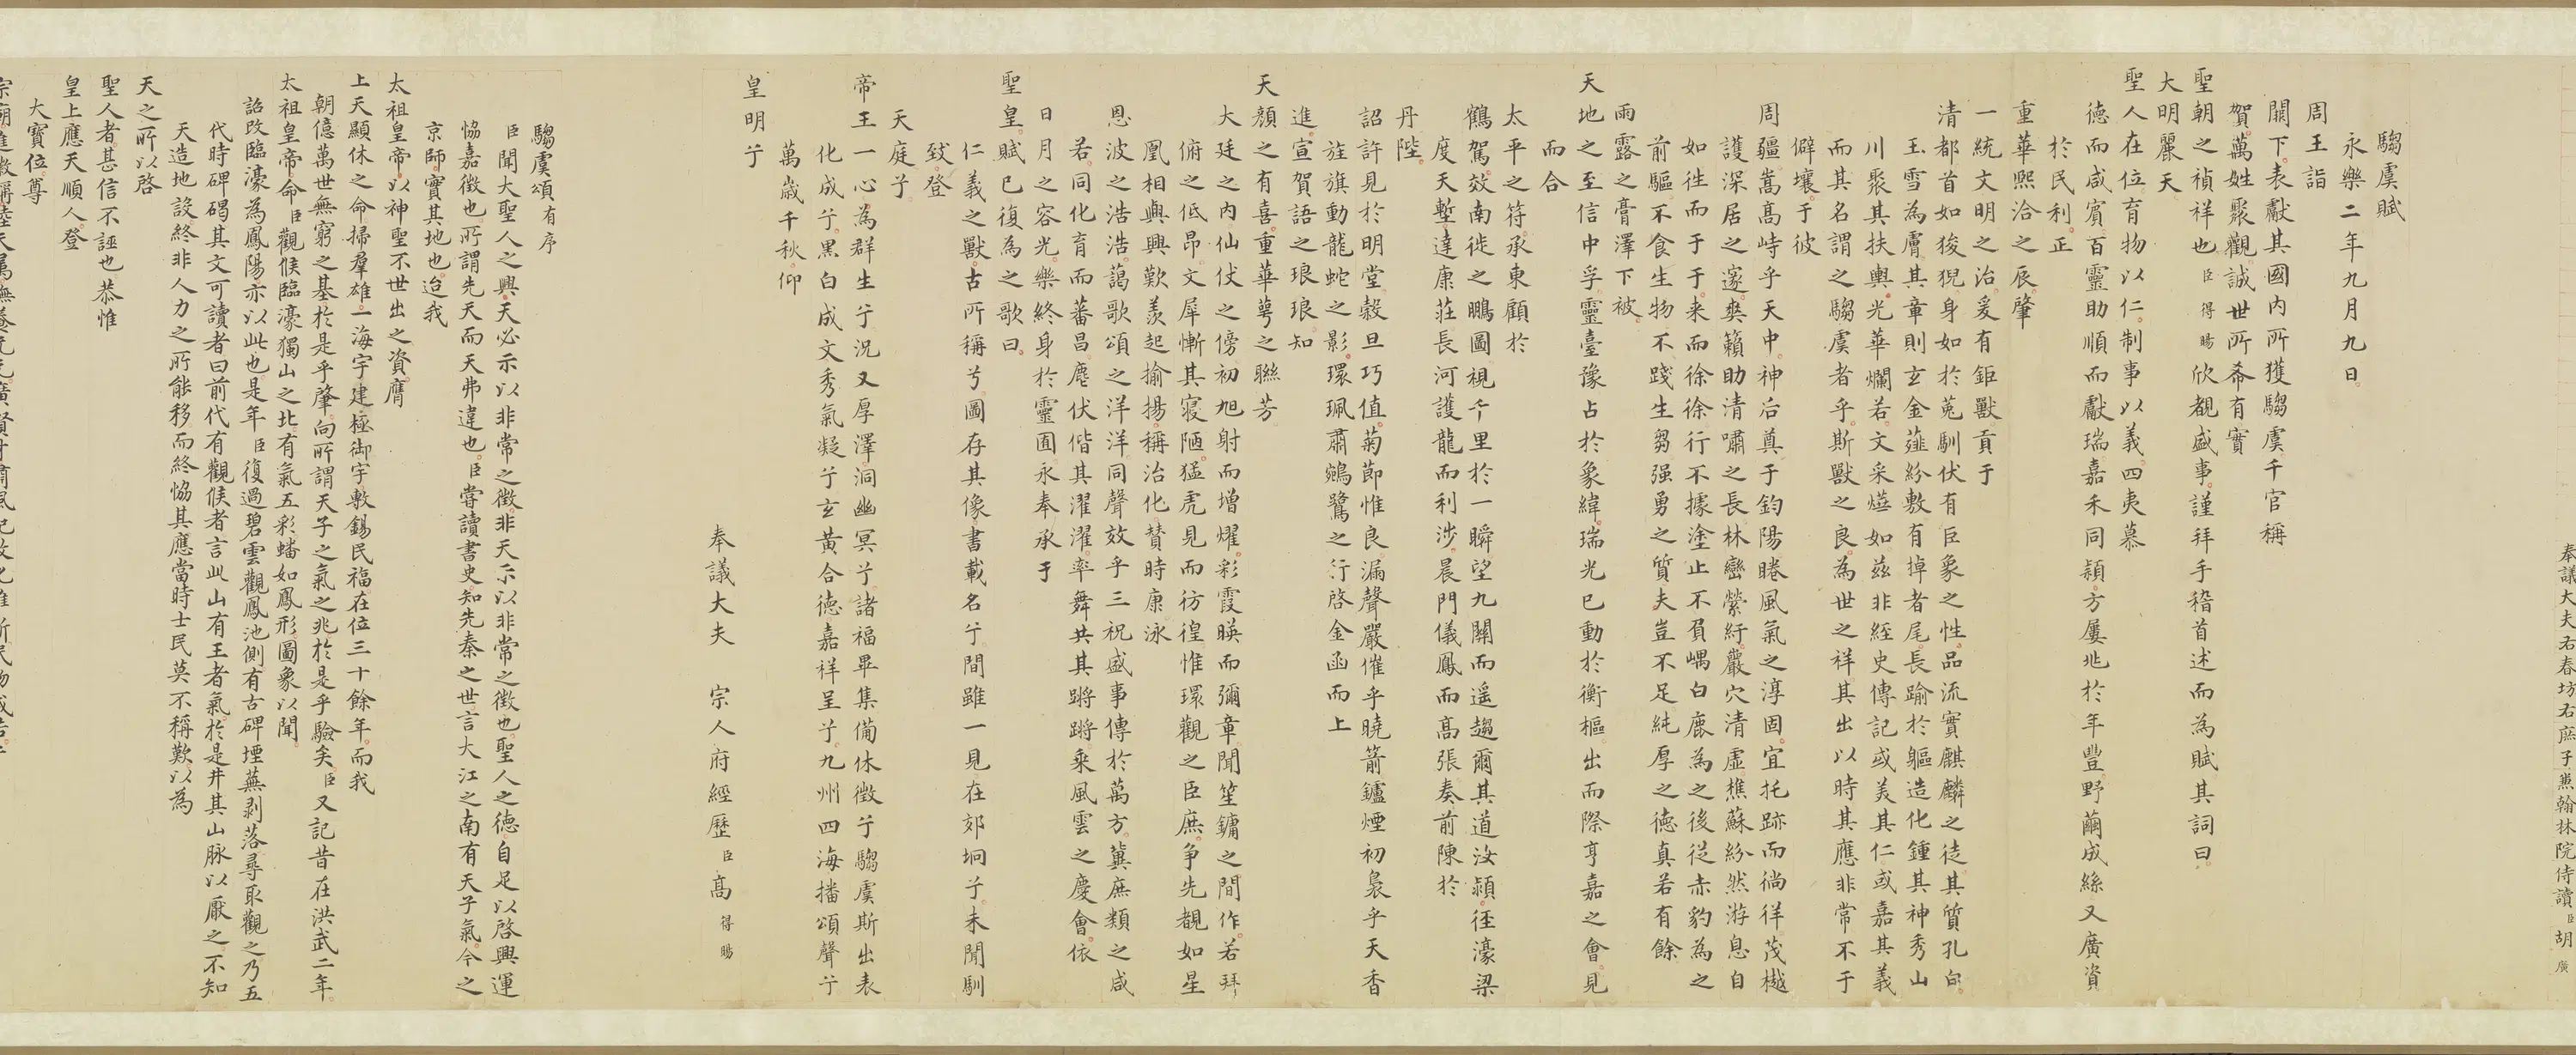 奉議大夫右春坊右庶子兼翰林院侍讀臣胡廣
騶虞賦
永樂二年九月九日
周王詣
闕下表獻其國內所獲騶虞千官稱
賀萬姓聚觀誠世所希有實
聖朝之禎祥也臣得暘欣覩盛事謹拜手稽首述而為賦其詞曰
大明麗天
聖人在位育物以仁制事以義四夷慕
德而咸賓百靈助順而獻瑞嘉禾同穎方屢兆於年豐野繭成絲又廣資
於民利正
重華熙洽之辰肇
一統文明之治爰有鉅獸貢于
清都首如狻猊身如於菟馴伏有巨象之性品流實麒麟之徒其質孔白
玉雪為膚其章則玄金薤紛敷有掉者尾長踰於軀造化鍾其神秀山
川聚其扶輿光華爛若文采爓如茲非經史傳記或美其仁或嘉其義
而其名謂之騶虞者乎斯獸之良為世之祥其出以時其應非常不于
僻壤于彼
周疆嵩高峙乎天中神后奠于鈞陽睠風氣之淳固宜托跡而徜徉茂樾
護深居之邃爽籟助清嘯之長林巒縈紆巖穴清虛樵蘇紛然游息自
如徃而于于来而徐徐行不據塗止不負嵎白鹿為之後從赤豹為之
前驅不食生物不踐生芻强勇之質夫豈不足純厚之德真若有餘
雨露之膏澤下被
天地之至信中孚靈臺豫占於象緯瑞光已動於衡樞出而際亨嘉之會見
而合
太平之符承東顧於
鶴駕效南徙之鵬圖視千里於一瞬望九關而遥趨爾其道汝潁徑濠梁
度天塹達康莊長河護龍而利涉晨門儀鳳而高張奏前陳於
丹陛
詔許見於明堂穀旦巧值菊節惟良漏聲嚴催乎曉箭鑪煙初裊乎天香
旌旗動龍蛇之影環珮肅鵷鷺之行啓金函而上
進宣賀語之琅琅知
天顏之有喜重華萼之聯芳
大廷之內仙仗之傍初旭射而增燿彩霞暎而彌章聞笙鏞之間作若拜
俯之低昂文犀慚其寢陋猛虎見而彷徨惟環觀之臣庶争先覩如星
凰相與興歎羡起揄揚稱治化賛時康泳
恩波之浩浩藹歌頌之洋洋同聲效乎三祝盛事傳於萬方冀庶類之咸
若同化育而蕃昌麀伏偕其濯濯率舞共其蹡蹡乗風雲之慶會依
日月之容光樂終身於靈囿永奉承于
聖皇賦已復為之歌曰
仁義之獸古所稱兮圖存其像書載名兮間雖一見在郊坰兮未聞馴
致登
天庭兮
帝王一心為群生兮況又厚澤洞幽冥兮諸福畢集備休徵兮騶虞斯出表
化成兮黑白成文秀氣凝兮玄黃合德嘉祥呈兮九州四海播頌聲兮
萬歲千秋仰
皇明兮
奉議大夫 宗人府經歷臣高得暘
騶虞頌有序
臣聞大聖人之興天必示以非常之徵非天示以非常之徵也聖人之德自足以啓興運
恊嘉徵也所謂先天而天弗違也臣嘗讀書史知先秦之世言大江之南有天子氣今之
京師實其地也迨我
太祖皇帝以神聖不世出之資膺
上天顯休之命掃羣雄一海宇建極御宇敷錫民福在位三十餘年而我
朝億萬世無窮之基於是乎肇向所謂天子之氣之兆於是乎驗矣臣又記昔在洪武二年
太祖皇帝命臣觀候臨濠獨山之北有氣五彩蟠如鳳形圖象以聞
詔改臨濠為鳳陽亦以此也是年臣復過碧雲觀鳳池側有古碑堙蕪剥落尋取觀之乃五
代時碑碣其文可讀者曰前代有觀候者言此山有王者氣於是井其山脉以厭之不知
天造地設終非人力之所能移而終恊其應當時士民莫不稱歎以為
天之所以啓
聖人者甚信不誣也恭惟
皇上應天順人登
大寶位尊